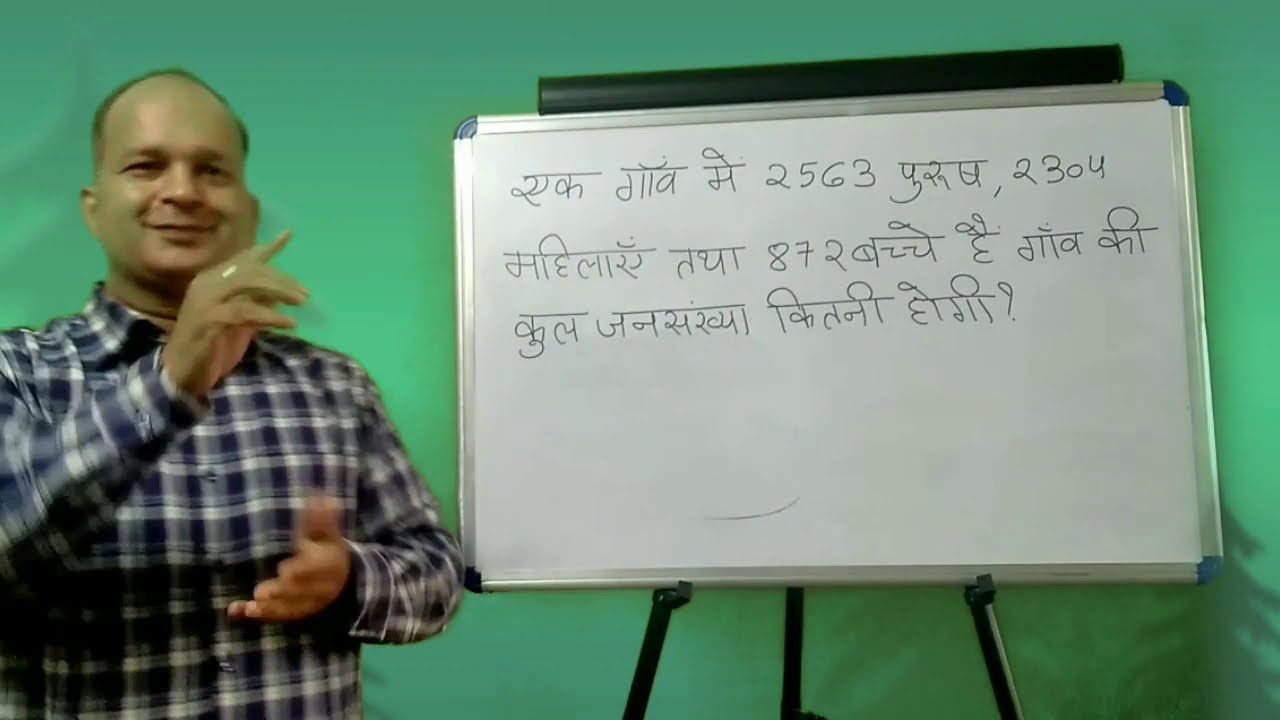 एक गाँव में 2563 पुरूष, 2304
महिलाएँ तथा 872 बच्चे हैं गाँव की
कुल जनसंख्या कितनी होगी?